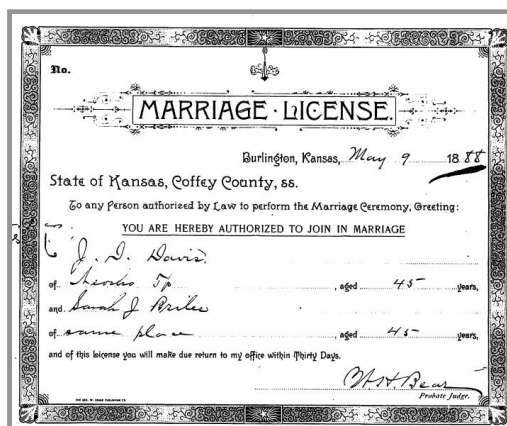 No.
MARRIAGE · LICENSE.
Burlington, Kansas, May 9 1888
State of Kansas, Coffey County, ss.
To any Person authorized by Law to perform the Marriage Ceremony, Greeting:
YOU ARE HEREBY AUTHORIZED TO JOIN IN MARRIAGE
J. D. Davis
of Neosho Tp , aged 45 years,
and Sarah J
of same place , aged 45 years,
and of this License you will make due return to my office within Thirty Days.
W. H. Bear
Probate Judge.